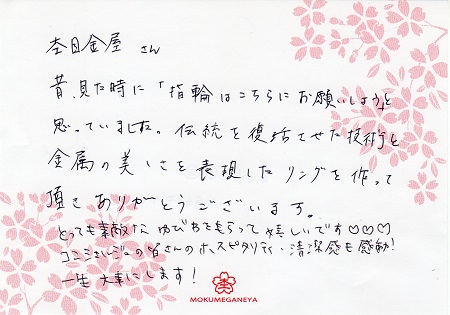 杢目金屋 さん
昔、見た時に「指輪はこちらにお願いしよう」と
思っていました。伝統を復活させた技術と
金属の美しさを表現したリングを作って
頂きありがとうございます。
とっても素敵な ゆびわをもらって 嬉しいです♡♡♡
コンシェルジュの皆さんのホスピタリティ・清潔感も感動!
一生 大事にします!
MOKUMEGANEYA